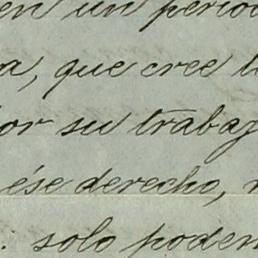 en un period
a, que cree l
or su trabaj
ése derecho,
. solo poden